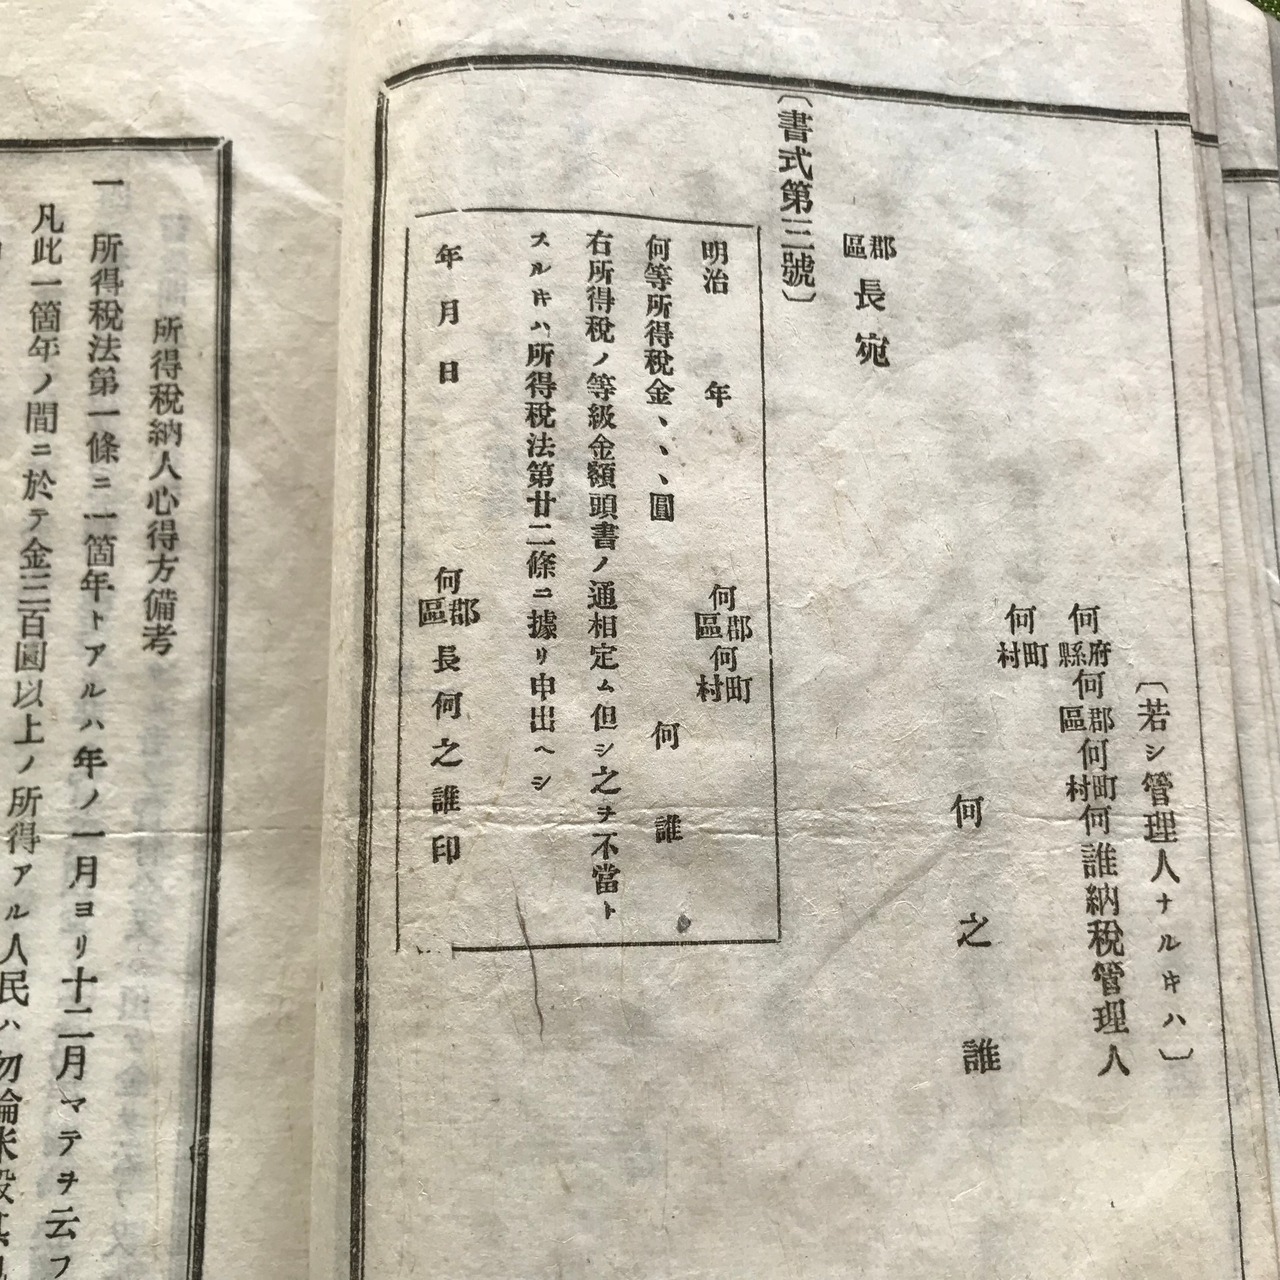 〔若シ管理人ナルキハ〕
何府縣何郡區何町村何誰納稅管理人
何町村
何之誰
郡區長宛
〔書式第三號〕
明治 年 何郡區何町村
何等所得稅金、、、圓 何誰
右所得稅ノ等級金額頭書ノ通相定ム但シ之ヲ不當ト
スルキハ所得稅法第廿二條ニ據リ申出ヘシ
年月日 何郡區長何之誰印
所得稅納人心得方備考
一 所得稅法第一條ニ一箇年トアルハ年ノ一月ヨリ十二月マテヲ云フ
凡此一箇年ノ間ニ於テ金三百圓以上ノ所得アル人民ハ勿論米穀其